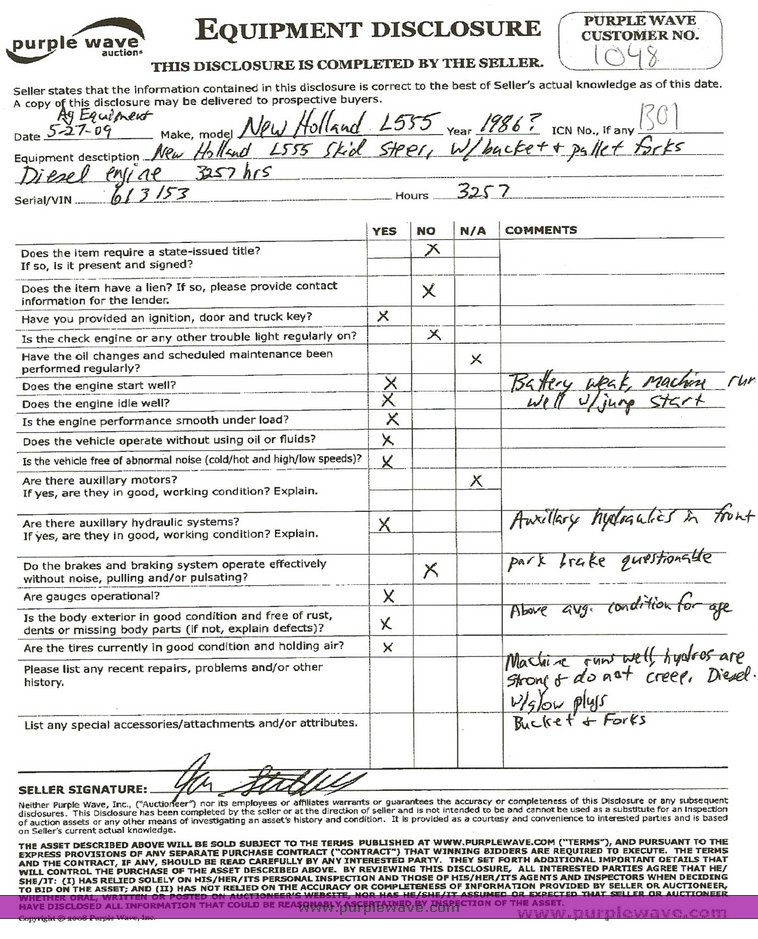 purple wave
auction®
EQUIPMENT DISCLOSURE
THIS DISCLOSURE IS COMPLETED BY THE SELLER.
PURPLE WAVE
CUSTOMER NO.
1048
Seller states that the information contained in this disclosure is correct to the best of Seller's actual knowledge as of this date.
A copy of this disclosure may be delivered to prospective buyers.
Ag Equipment
Date 5-27-09 Make, model New Holland L555 Year 1986? ICN No., if any 1301
Equipment desctiption New Holland L555 Skid Steer, w/bucket + pallet forks
Diesel engine 3257 hrs
Serial/VIN 613153 Hours 3257
YES NO N/A COMMENTS
Does the item require a state-issued title? X
If so, is it present and signed?
Does the item have a lien? If so, please provide contact X
information for the lender.
Have you provided an ignition, door and truck key? X
Is the check engine or any other trouble light regularly on? X
Have the oil changes and scheduled maintenance been X
performed regularly?
Does the engine start well? X Battery weak, machine run
Does the engine idle well? X well w/jump start
Is the engine performance smooth under load? X
Does the vehicle operate without using oil or fluids? X
Is the vehicle free of abnormal noise (cold/hot and high/low speeds)? X
Are there auxillary motors? X
If yes, are they in good, working condition? Explain.
Are there auxillary hydraulic systems? X Auxillary hydraulics in front
If yes, are they in good, working condition? Explain.
Do the brakes and braking system operate effectively X park brake questionable
without noise, pulling and/or pulsating?
Are gauges operational? X
Is the body exterior in good condition and free of rust, X Above avg. condition for age
dents or missing body parts (if not, explain defects)?
Are the tires currently in good condition and holding air? X
Please list any recent repairs, problems and/or other Machine runs well, hydros are
history. strong + do not creep. Diesel.
w/glow plugs
List any special accessories/attachments and/or attributes. Bucket + Forks
SELLER SIGNATURE:
Neither Purple Wave, Inc., ("Auctioneer") nor its employees or affiliates warrants or guarantees the accuracy or completeness of this Disclosure or any subsequent
disclosures. This Disclosure has been completed by the seller or at the direction of seller and is not intended to be and cannot be used as a substitute for an inspection
of auction assets or any other means of investigating an asset's history and condition. It is provided as a courtesy and convenience to interested parties and is based
on Seller's current actual knowledge.
THE ASSET DESCRIBED ABOVE WILL BE SOLD SUBJECT TO THE TERMS PUBLISHED AT WWW.PURPLEWAVE.COM ("TERMS"), AND PURSUANT TO THE
EXPRESS PROVISIONS OF ANY SEPARATE PURCHASE CONTRACT ("CONTRACT") THAT WINNING BIDDERS ARE REQUIRED TO EXECUTE. THE TERMS
AND THE CONTRACT, IF ANY, SHOULD BE READ CAREFULLY BY ANY INTERESTED PARTY. THEY SET FORTH ADDITIONAL IMPORTANT DETAILS THAT
WILL CONTROL THE PURCHASE OF THE ASSET DESCRIBED ABOVE. BY REVIEWING THIS DISCLOSURE, ALL INTERESTED PARTIES AGREE THAT HE/
SHE/IT: (I) HAS RELIED SOLELY ON HIS/HER/ITS PERSONAL INSPECTION AND THOSE OF HIS/HER/ITS AGENTS AND INSPECTORS WHEN DECIDING
TO BID ON THE ASSET; AND (II) HAS NOT RELIED ON THE ACCURACY OR COMPLETENESS OF INFORMATION PROVIDED BY SELLER OR AUCTIONEER,
WHETHER ORAL, WRITTEN OR POSTED ON AUCTIONEER'S WEBSITE, NOR HAS HE/SHE/IT ASSUMED OR EXPECTED THAT SELLER OR AUCTIONEER
HAVE DISCLOSED ALL INFORMATION THAT COULD BE REASONABLY ASCERTAINED BY INSPECTION OF THE ASSET.
www.purplewave.com
www.purplewave.com
Copyright © 2008 Purple Wave, Inc.